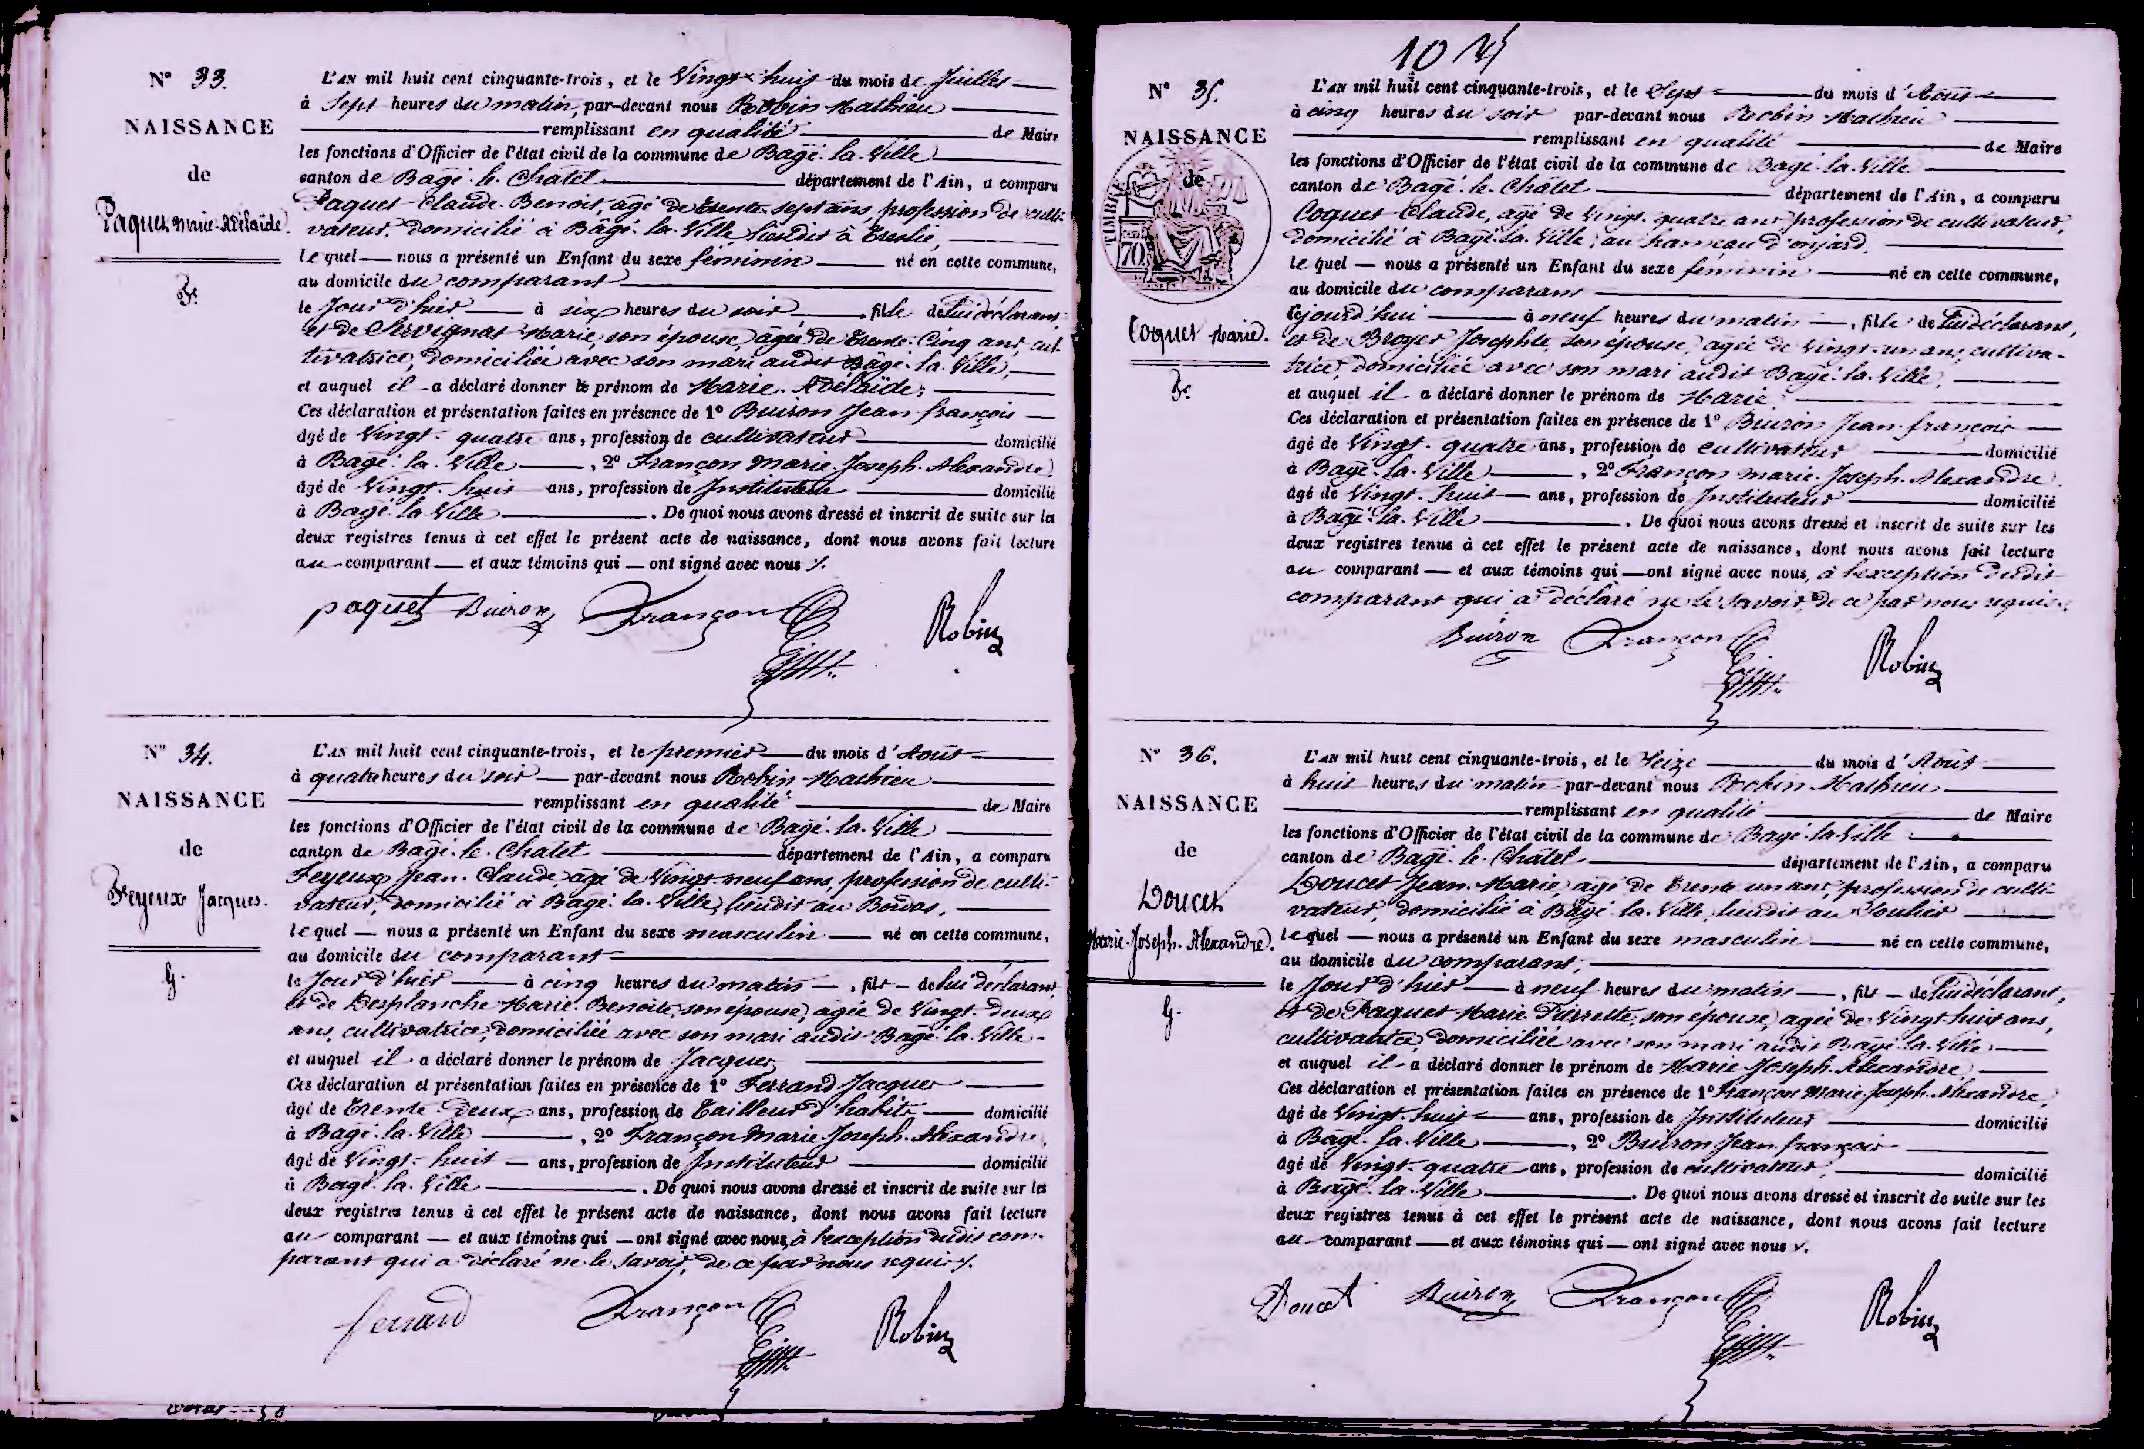 N° 33.
NAISSANCE
de
Paquet Marie-Adélaïde.
F.
L'AN mil huit cent cinquante-trois, et le Vingt-huit du mois de Juillet
à Sept heures du matin, par-devant nous Robin Mathieu
remplissant en qualité de Maire
les fonctions d'Officier de l'état civil de la commune de Bâgé-la-Ville
canton de Bâgé-le-Châtel département de l'Ain, a comparu
Paquet Claude-Benoit, âgé de trente-sept ans, profession de culti-
vateur, domicilié à Bâgé-la-Ville lieudit à
le quel nous a présenté un Enfant du sexe féminin né en cette commune,
au domicile du comparant
le Jour d'hier à six heures du soir, fille de lui déclarant
et de Servignat Marie, son épouse, âgée de trente-cinq ans, cul-
tivatrice, domiciliée avec son mari audit Bâgé-la-Ville,
et auquel il a déclaré donner le prénom de Marie-Adélaïde;
Ces déclaration et présentation faites en présence de 1° Buiron Jean-françois
âgé de Vingt-quatre ans, profession de cultivateur domicilié
à Bagé-la-Ville, 2° Françon Marie-Joseph-Alexandre
âgé de Vingt-huit ans, profession de Instituteur domicilié
à Bagé-la-Ville. De quoi nous avons dressé et inscrit de suite sur les
deux registres tenus à cet effet le présent acte de naissance, dont nous avons fait lecture
au comparant et aux témoins qui ont signé avec nous /.
paquet Buiron Françon Robin
N° 34.
NAISSANCE
de
Feyeux Jacques.
G.
L'AN mil huit cent cinquante-trois, et le premier du mois d'Août
à quatre heures du soir par-devant nous Robin Mathieu
remplissant en qualité de Maire
les fonctions d'Officier de l'état civil de la commune de Bagé-la-Ville
canton de Bagé-le-Chatel département de l'Ain, a comparu
Feyeux Jean-Claude, âgé de Vingt-neuf ans, profession de culti-
vateur, domicilié à Bagé-la-Ville, lieudit au
le quel nous a présenté un Enfant du sexe masculin né en cette commune,
au domicile du comparant
le Jour d'hier à cinq heures du matin, fils de lui déclarant
et de Desplanche Marie-Benoite, son épouse, âgée de Vingt-deux
ans, cultivatrice, domiciliée avec son mari audit Bagé-la-Ville
et auquel il a déclaré donner le prénom de Jacques
Ces déclaration et présentation faites en présence de 1° Ferrand Jacques
âgé de trente-deux ans, profession de tailleur d'habits domicilié
à Bagé-la-Ville, 2° Françon Marie-Joseph-Alexandre,
âgé de Vingt-huit ans, profession de Instituteur domicilié
à Bagé-la-Ville. De quoi nous avons dressé et inscrit de suite sur les
deux registres tenus à cet effet le présent acte de naissance, dont nous avons fait lecture
au comparant et aux témoins qui ont signé avec nous, à l'exception dudit com-
parant qui a déclaré ne le savoir, de ce par nous requis /.
ferrand Françon Robin
N° 35.
NAISSANCE
de
TIMBRE
70
Coquet Marie.
F.
L'AN mil huit cent cinquante-trois, et le Sept du mois d'Août
à cinq heures du soir par-devant nous Robin Mathieu
remplissant en qualité de Maire
les fonctions d'Officier de l'état civil de la commune de Bagé-la-Ville
canton de Bagé-le-Chatel département de l'Ain, a comparu
Coquet Claude, âgé de Vingt-quatre ans, profession de cultivateur,
domicilié à Bagé-la-Ville, au hameau d'onjard,
le quel nous a présenté un Enfant du sexe féminin né en cette commune,
au domicile du comparant
cejourd'hui à neuf heures du matin, fille de lui déclarant,
et de Broyer Josephte, son épouse, âgée de vingt-un ans, cultiva-
trice, domiciliée avec son mari audit Bagé-la-Ville,
et auquel il a déclaré donner le prénom de Marie
Ces déclaration et présentation faites en présence de 1° Buiron Jean-françois
âgé de Vingt-quatre ans, profession de cultivateur domicilié
à Bagé-la-Ville, 2° Françon marie-Joseph-Alexandre
âgé de Vingt-huit ans, profession de Instituteur domicilié
à Bagé-la-Ville. De quoi nous avons dressé et inscrit de suite sur les
deux registres tenus à cet effet le présent acte de naissance, dont nous avons fait lecture
au comparant et aux témoins qui ont signé avec nous, à l'exception dudit
comparant qui a déclaré ne le savoir, de ce par nous requis.
Buiron Françon Robin
N° 36.
NAISSANCE
de
Doucet
Marie-Joseph-Alexandre.
G.
L'AN mil huit cent cinquante-trois, et le Seize du mois d'Août
à huit heures du matin par-devant nous Robin Mathieu
remplissant en qualité de Maire
les fonctions d'Officier de l'état civil de la commune de Bagé-la-Ville
canton de Bagé-le-Châtel département de l'Ain, a comparu
Doucet Jean-Marie, âgé de trente-un ans, profession de culti-
vateur, domicilié à Bâgé-la-Ville, lieudit au
le quel nous a présenté un Enfant du sexe masculin né en cette commune,
au domicile du comparant,
le Jour d'hier à neuf heures du matin, fils de lui déclarant,
et de Paquet Marie-Pierrette, son épouse, âgée de Vingt-huit ans,
cultivatrice, domiciliée avec son mari audit Bâgé-la-Ville
et auquel il a déclaré donner le prénom de Marie-Joseph-Alexandre
Ces déclaration et présentation faites en présence de 1° Françon Marie-Joseph-Alexandre,
âgé de Vingt-huit ans, profession de Instituteur domicilié
à Bâgé-la-Ville, 2° Buiron Jean-françois
âgé de Vingt-quatre ans, profession de cultivateur domicilié
à Bâgé-la-Ville. De quoi nous avons dressé et inscrit de suite sur les
deux registres tenus à cet effet le présent acte de naissance, dont nous avons fait lecture
au comparant et aux témoins qui ont signé avec nous /.
Doucet Buiron Françon Robin